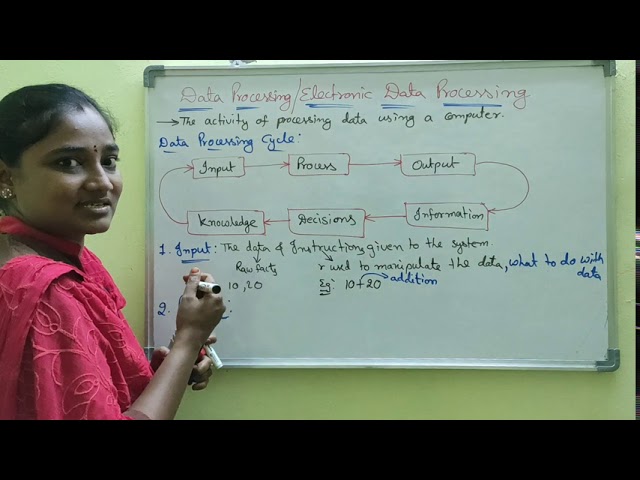 Data Processing/Electronic Data Processing
→ The activity of processing data using a computer.
Data Processing Cycle:
Input Process Output
Knowledge Decisions Information
1. Input: The data & Instructions given to the system.
Raw facts r used to manipulate the data, what to do with data
10,20 Eg: 10+20 addition
2.